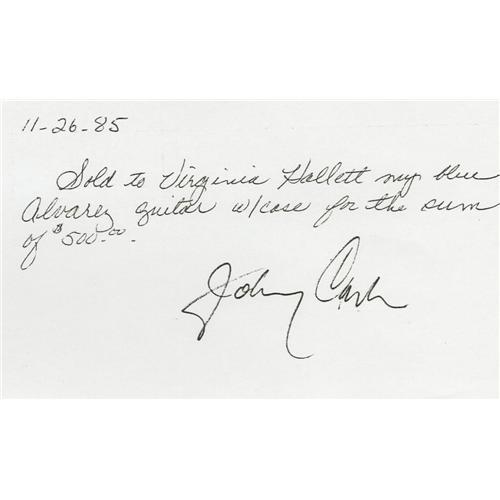 11-26-85
Sold to Virginia Hallett my blue
Alvarez guitar w/case for the sum
of $500.00.
Johnny Cash